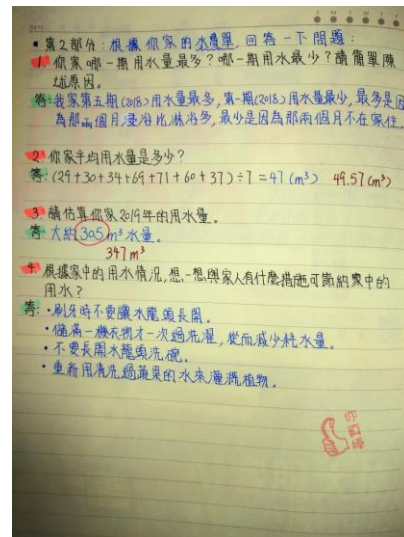 第2部分：根據你家的水費單，回答一下問題：
1. 你家哪一期用水量最多？哪一期用水最少？請簡單陳
述原因。
答：我家第五期(2018)用水量最多，第一期(2018)用水量最少，最多是因
為那兩個月浸浴比淋浴多，最少是因為那兩個月不在家住。
2. 你家平均用水量是多少？
答：(29+30+34+69+71+60+37)÷7=47(m³) 49.57(m³)
3. 請估算你家2019年的用水量。
答：大約305m³水量。
347m³
4. 根據家中的用水情況，想一想與家人有什麼措施可節約家中的
用水？
答：·刷牙時不要讓水龍頭長開。
·儲滿一機衣物才一次過洗濯，從而減少耗水量。
·不要長開水龍頭洗碗。
·重新用清洗過蔬果的水來灌溉植物。
你真棒